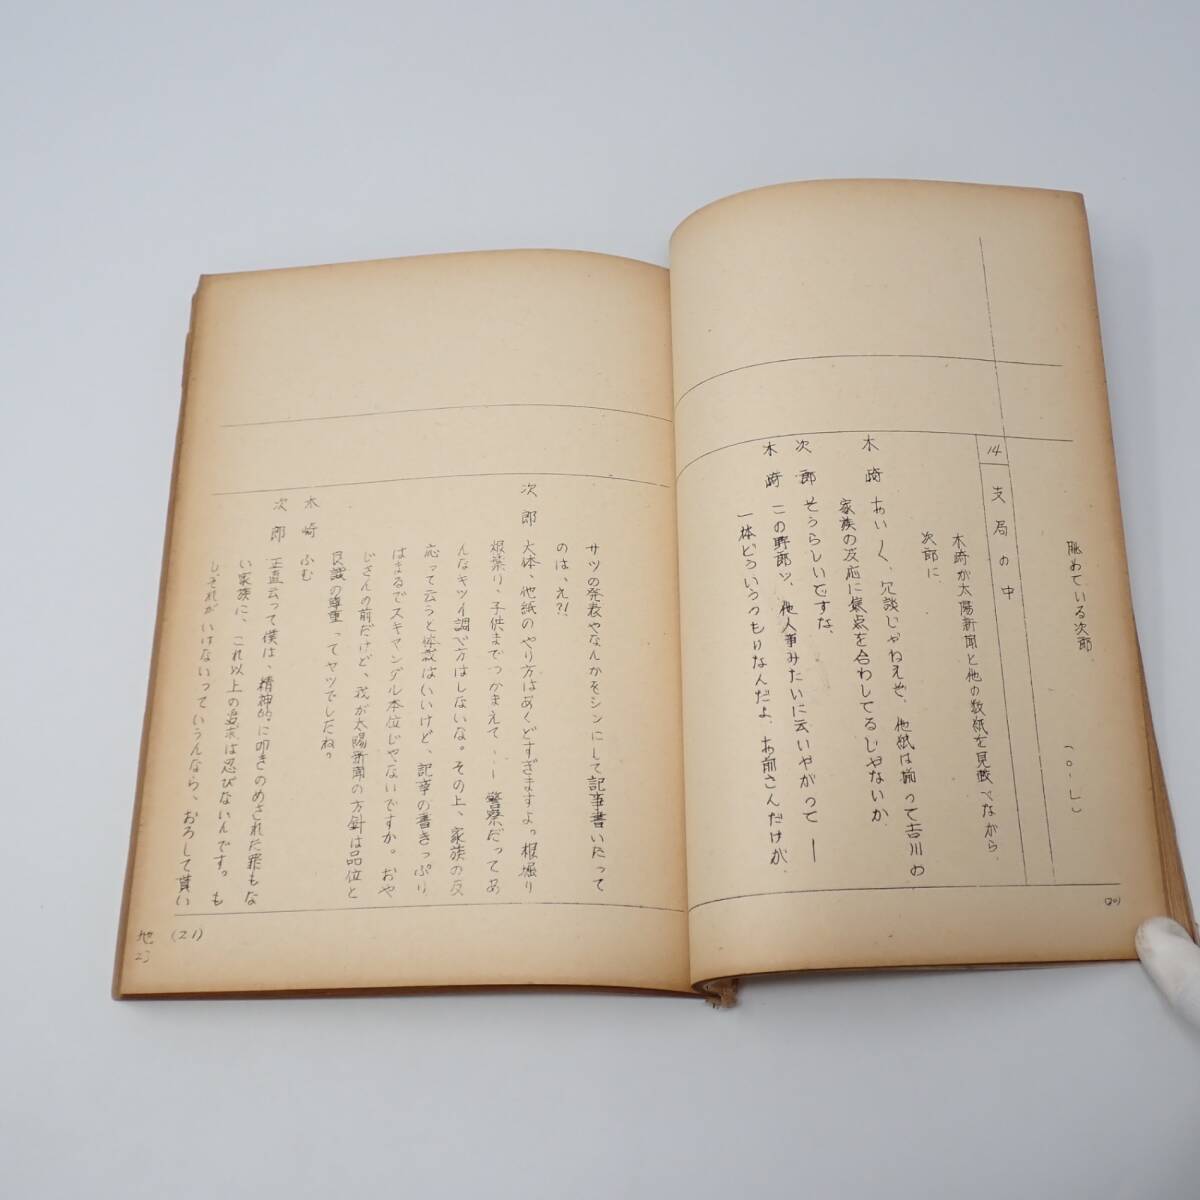 眺めている次郎。
(O・L)
14 支局の中
木崎が太陽新聞と他の数紙を見較べながら、
次郎に、
木崎 おい〱、冗談じゃねえぞ、他紙は揃って吉川の
家族の反応に焦点を合わしてるじゃないか
次郎 そうらしいですな、
木崎 この野郎ッ、他人事みたいに云いやがって――
一体どういうつもりなんだよ、お前さんだけが、
(20)
サツの発表やなんかをシンにして記事書いたって
のは、え?!
次郎 大体、他紙のやり方はあくどすぎますよ。根掘り
葉掘り、子供までつかまえて……警察だってあ
んなキツイ調べ方はしないな。その上、家族の反
応って云うと体裁はいいけど、記事の書きっぷり
はまるでスキャンダル本位じゃないですか。おや
じさんの前だけど、我が太陽新聞の方針は品位と
良識の尊重ってヤツでしたね?
木崎 ふむ
次郎 正直云って僕は、精神的に叩きのめされた罪もな
い家族に、これ以上の追求は忍びないんです。も
し、それがいけないっていうんなら、おろして貰い
(21)
地